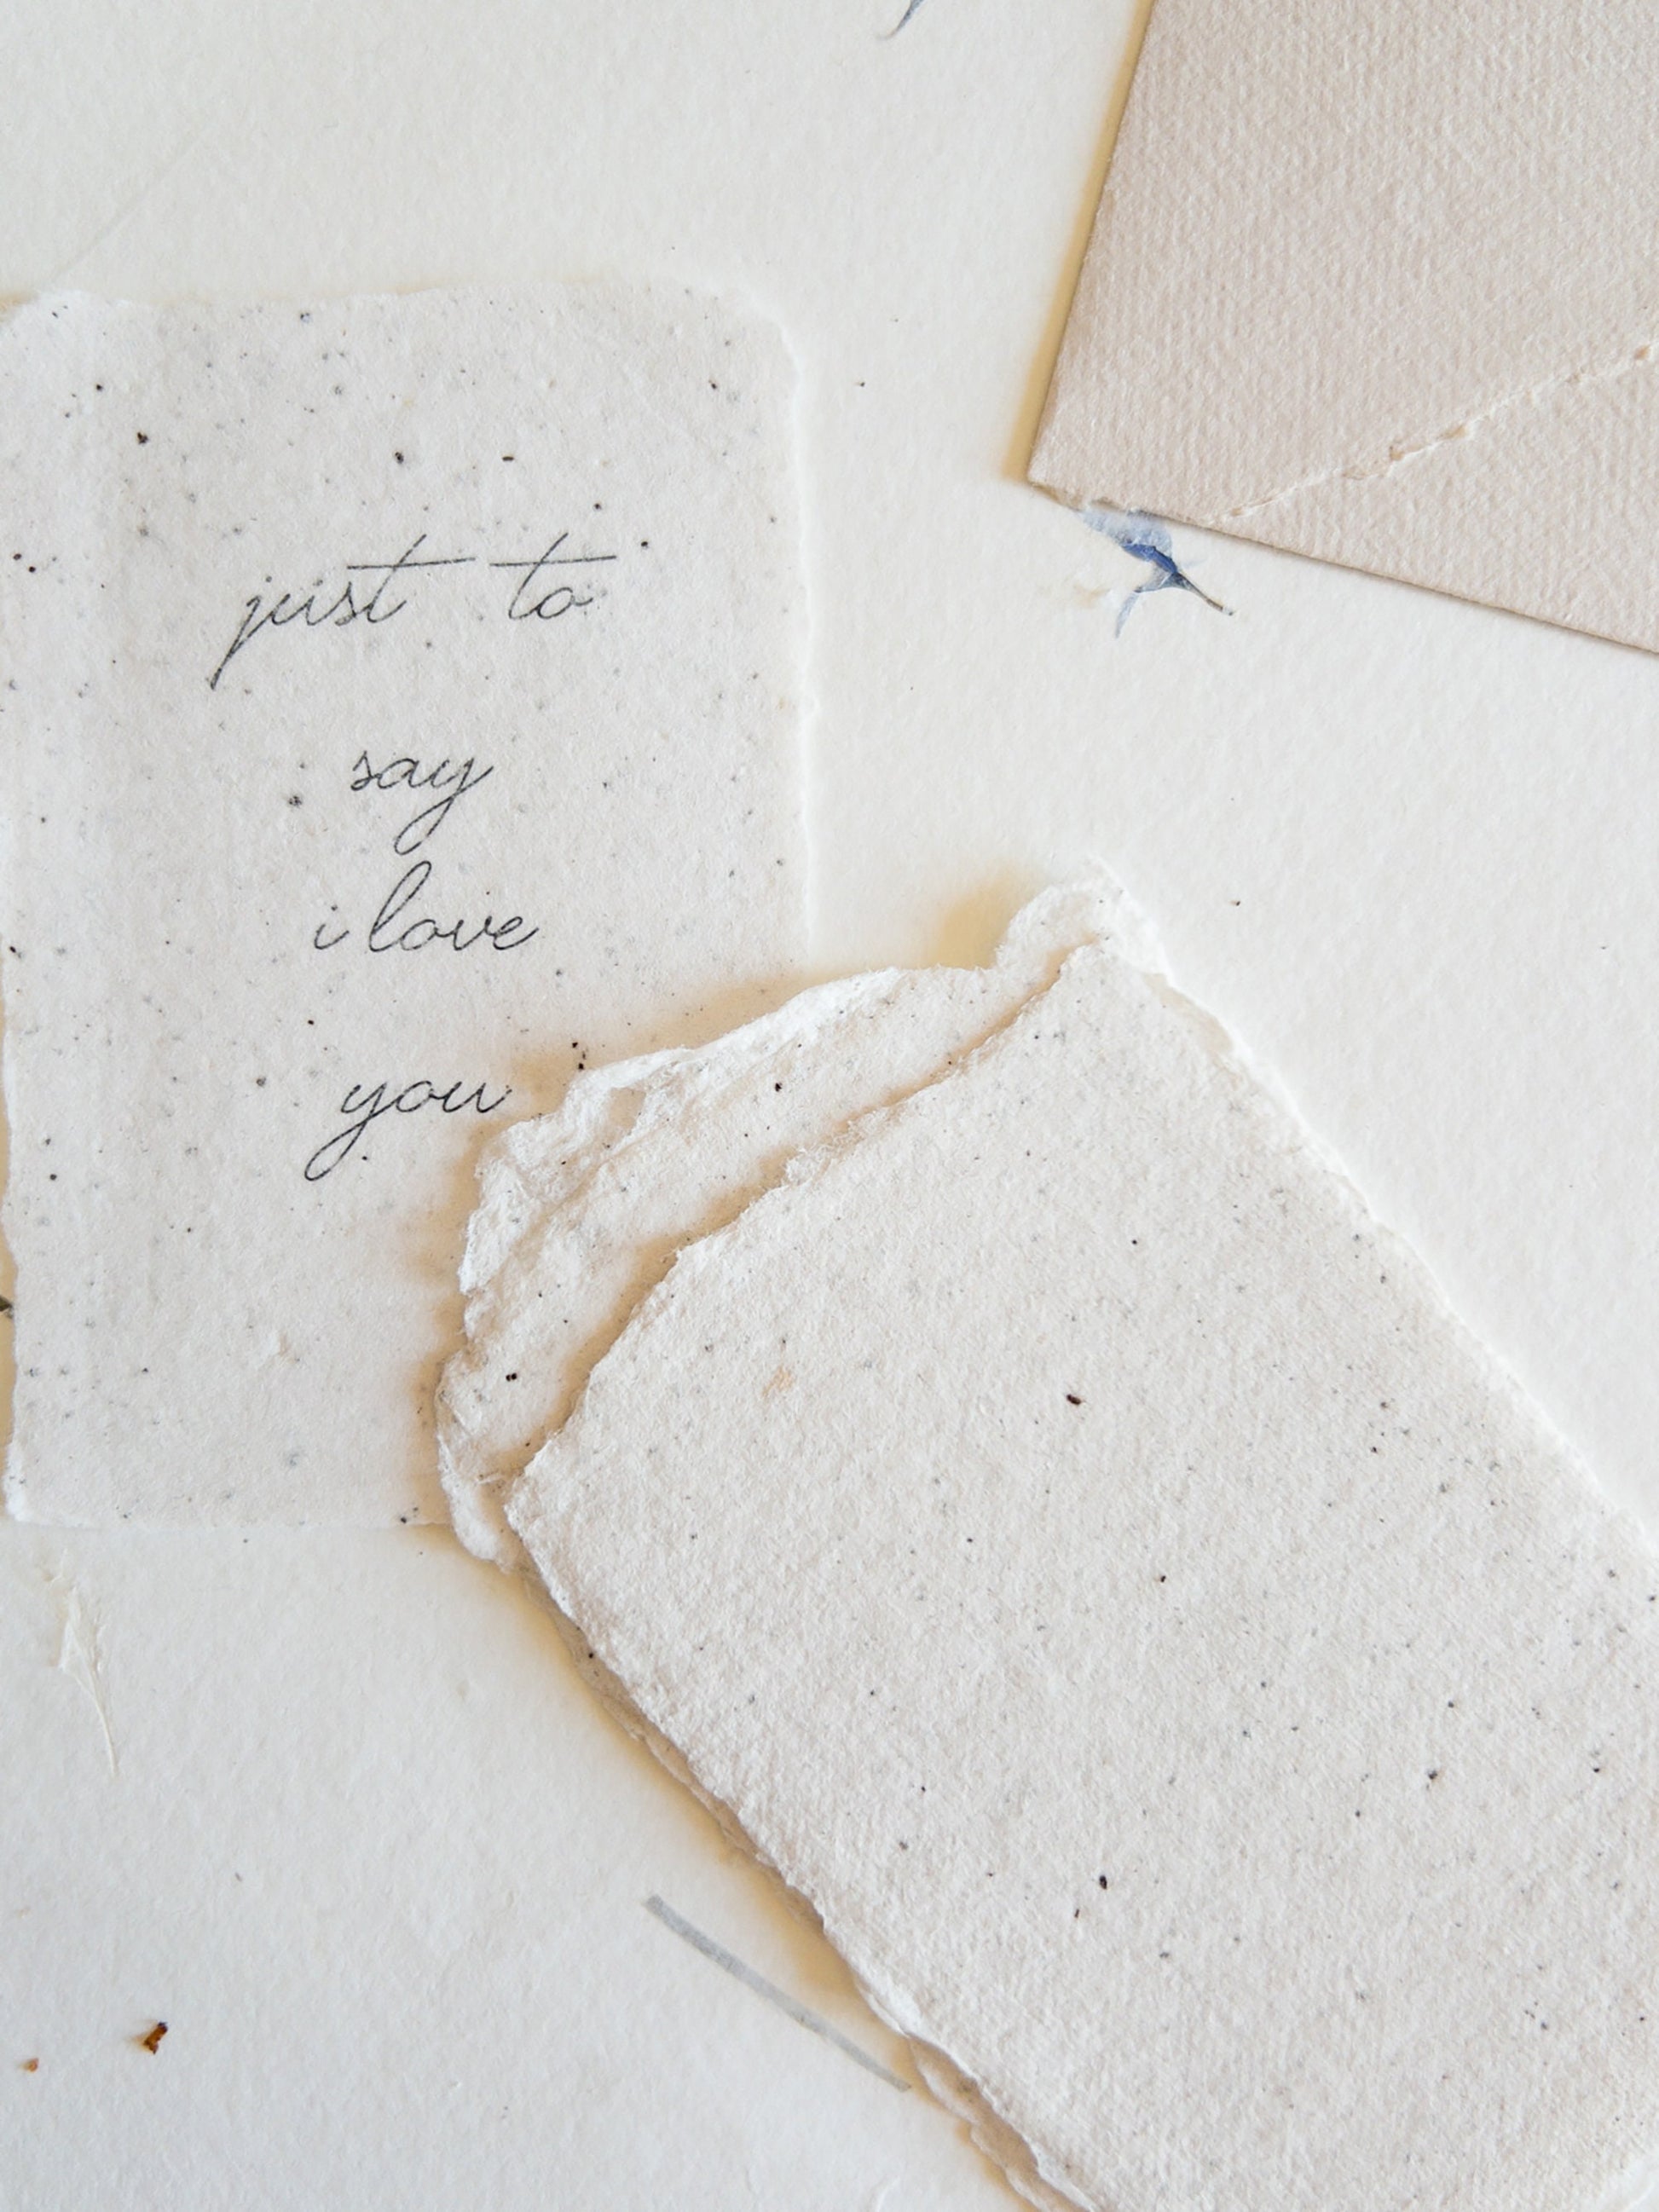 just to
say
i love
you